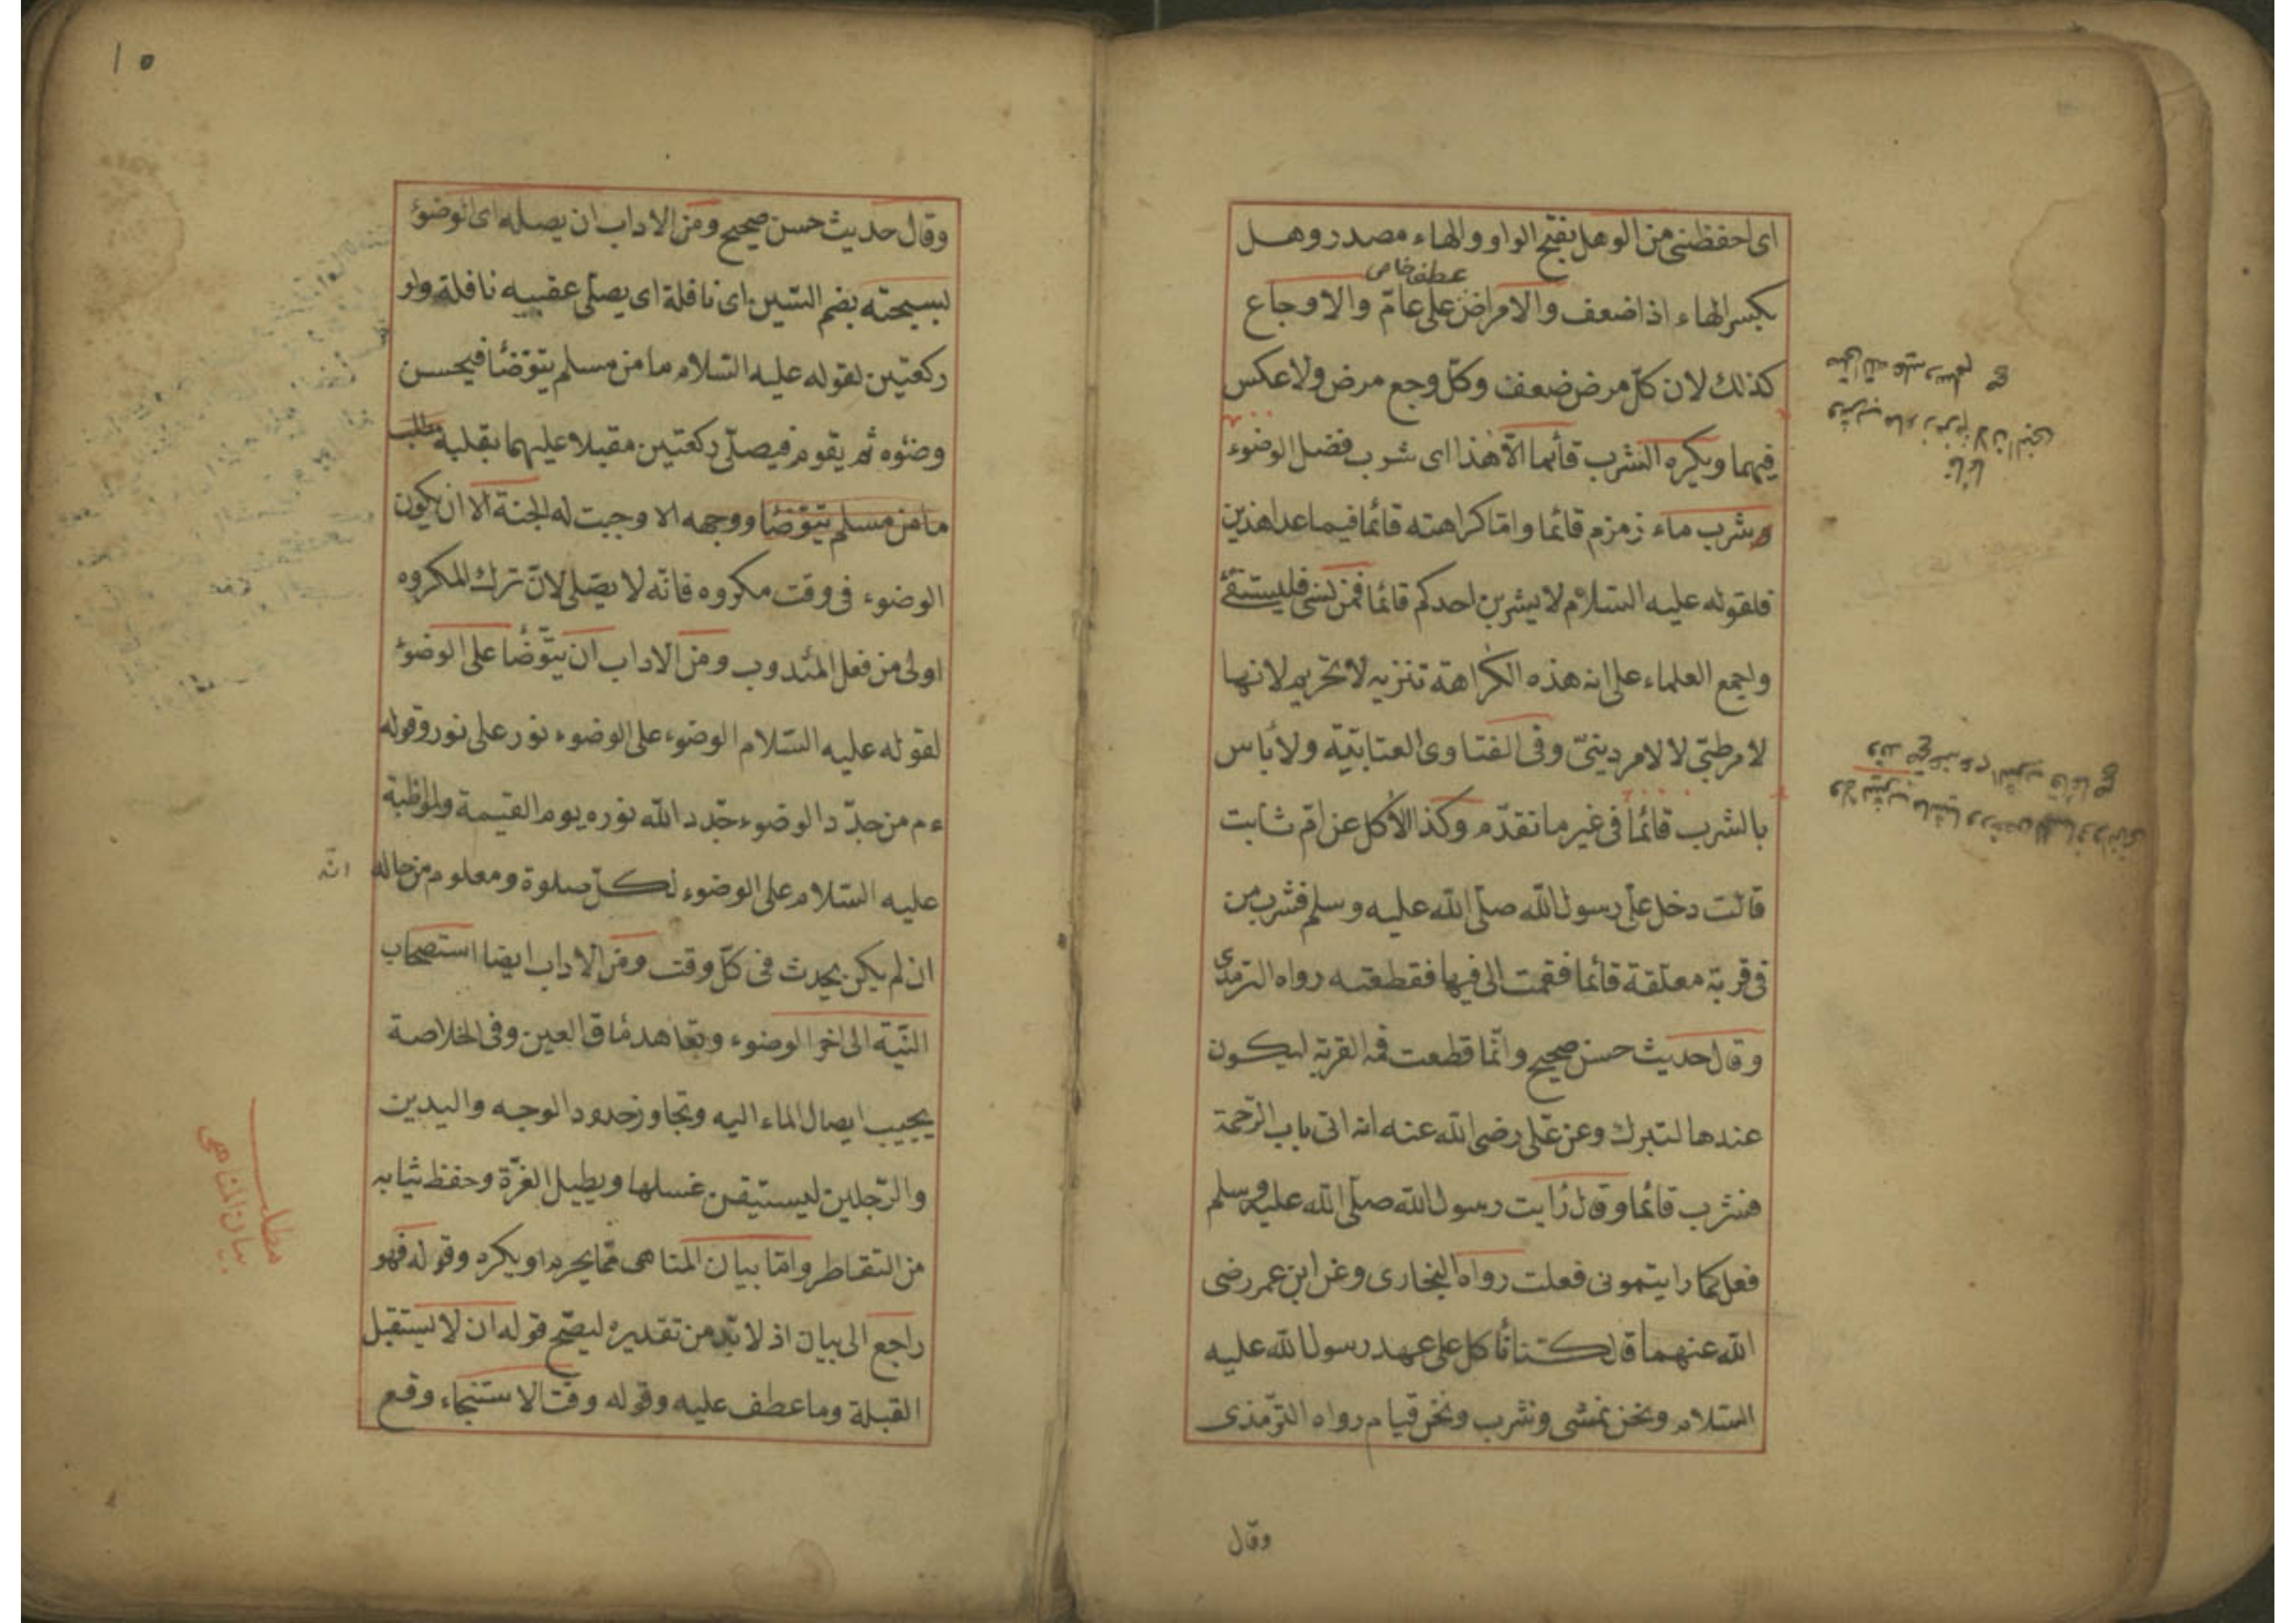 اى احفظنى من الوهل بفتح الواو والهاء مصدر وهل
عطف خاص
بكسر الهاء اذا ضعف والامراض على عامّ والاوجاع
كذلك لان كلّ مرض ضعف وكلّ وجع مرض ولا عكس
فيهما ويكره الشرب قائما الّا هذا اى شرب فضل الوضوء
وشرب ماء زمزم قائما وامّا كراهته قائما فيما عدا هذين
فلقوله عليه السّلام لا يشربن احدكم قائما فمن نسى فليستقئ
واجمع العلماء على انه هذه الكراهة تنزيه لا تحريم لانها
لامر طبّى لا لامر دينىّ وفى الفتاوى العتابيّة ولا بأس
بالشرب قائما فى غير ما تقدّم وكذا الاكل عن امّ ثابت
قالت دخل علىّ رسول اللّه صلّى اللّه عليه وسلم فشرب من
فى قربة معلّقة قائما فقمت الى فيها فقطعته رواه الترمذى
وقال حديث حسن صحيح وانّما قطعت فم القربة ليكون
عندها لتبرك وعن علّى رضى اللّه عنه انه اتى باب الرّحمة
فشرب قائما وقال رأيت رسول اللّه صلّى اللّه عليه وسلم
فعل كما رايتمونى فعلت رواه البخارى وعن ابن عمر رضى
اللّه عنهما قال كنّا نأكل على عهد رسول اللّه عليه
السّلام ونحن نمشى ونشرب ونحن قيام رواه الترّمذى
وقال
وشرب ماء زمزم لان النبى
صلى الله عليه وسلم
قائما
صح
١٥
وقال حديث حسن صحيح ومن الاداب ان يصله اى الوضوء
لبسبحته بضم السّين اى نافلة اى يصلّى عقيبه نافلة ولو
ركعتين لقوله عليه السّلام ما من مسلم يتوّضأ فيحسن
وضوئه ثم يقوم فيصلّى ركعتين مقبلا عليهما بقلبه
مطلب
ما من مسلم يتوّضأ ووجهه الا وجبت له الجنة الا ان يكون
الوضوء فى وقت مكروه فانّه لا يصّلى لانّ ترك المكروه
اولى من فعل المندوب ومن الاداب ان يتوّضأ على الوضوء
لقوله عليه السّلام الوضوء على الوضوء نور على نور وقوله
ءم من جدّد الوضوء جدّد اللّه نوره يوم القيمة ولمواظبة
عليه السّلام على الوضوء لكلّ صلوة ومعلوم من حاله
انّه
ان لم يكن يحدث فى كلّ وقت ومن الاداب ايضا استصحاب
النّية الى اخر الوضوء وتعاهد مأق العين وفى الخلاصة
يجيب ايصال الماء اليه وتجاوز حدود الوجه واليدين
والرّجلين ليستيقن غسلها ويطيل الغرّة وحفظ ثيابه
من التقاطر وامّا بيان المناهى ممّا يحرم او يكره وقوله فهو
راجع الى بيان اذ لا بّد من تقديره ليصّح قوله ان لا يستقبل
القبلة وما عطف عليه وقوله وقت الاستنجاء وقع
مطلب
بيان المناهى